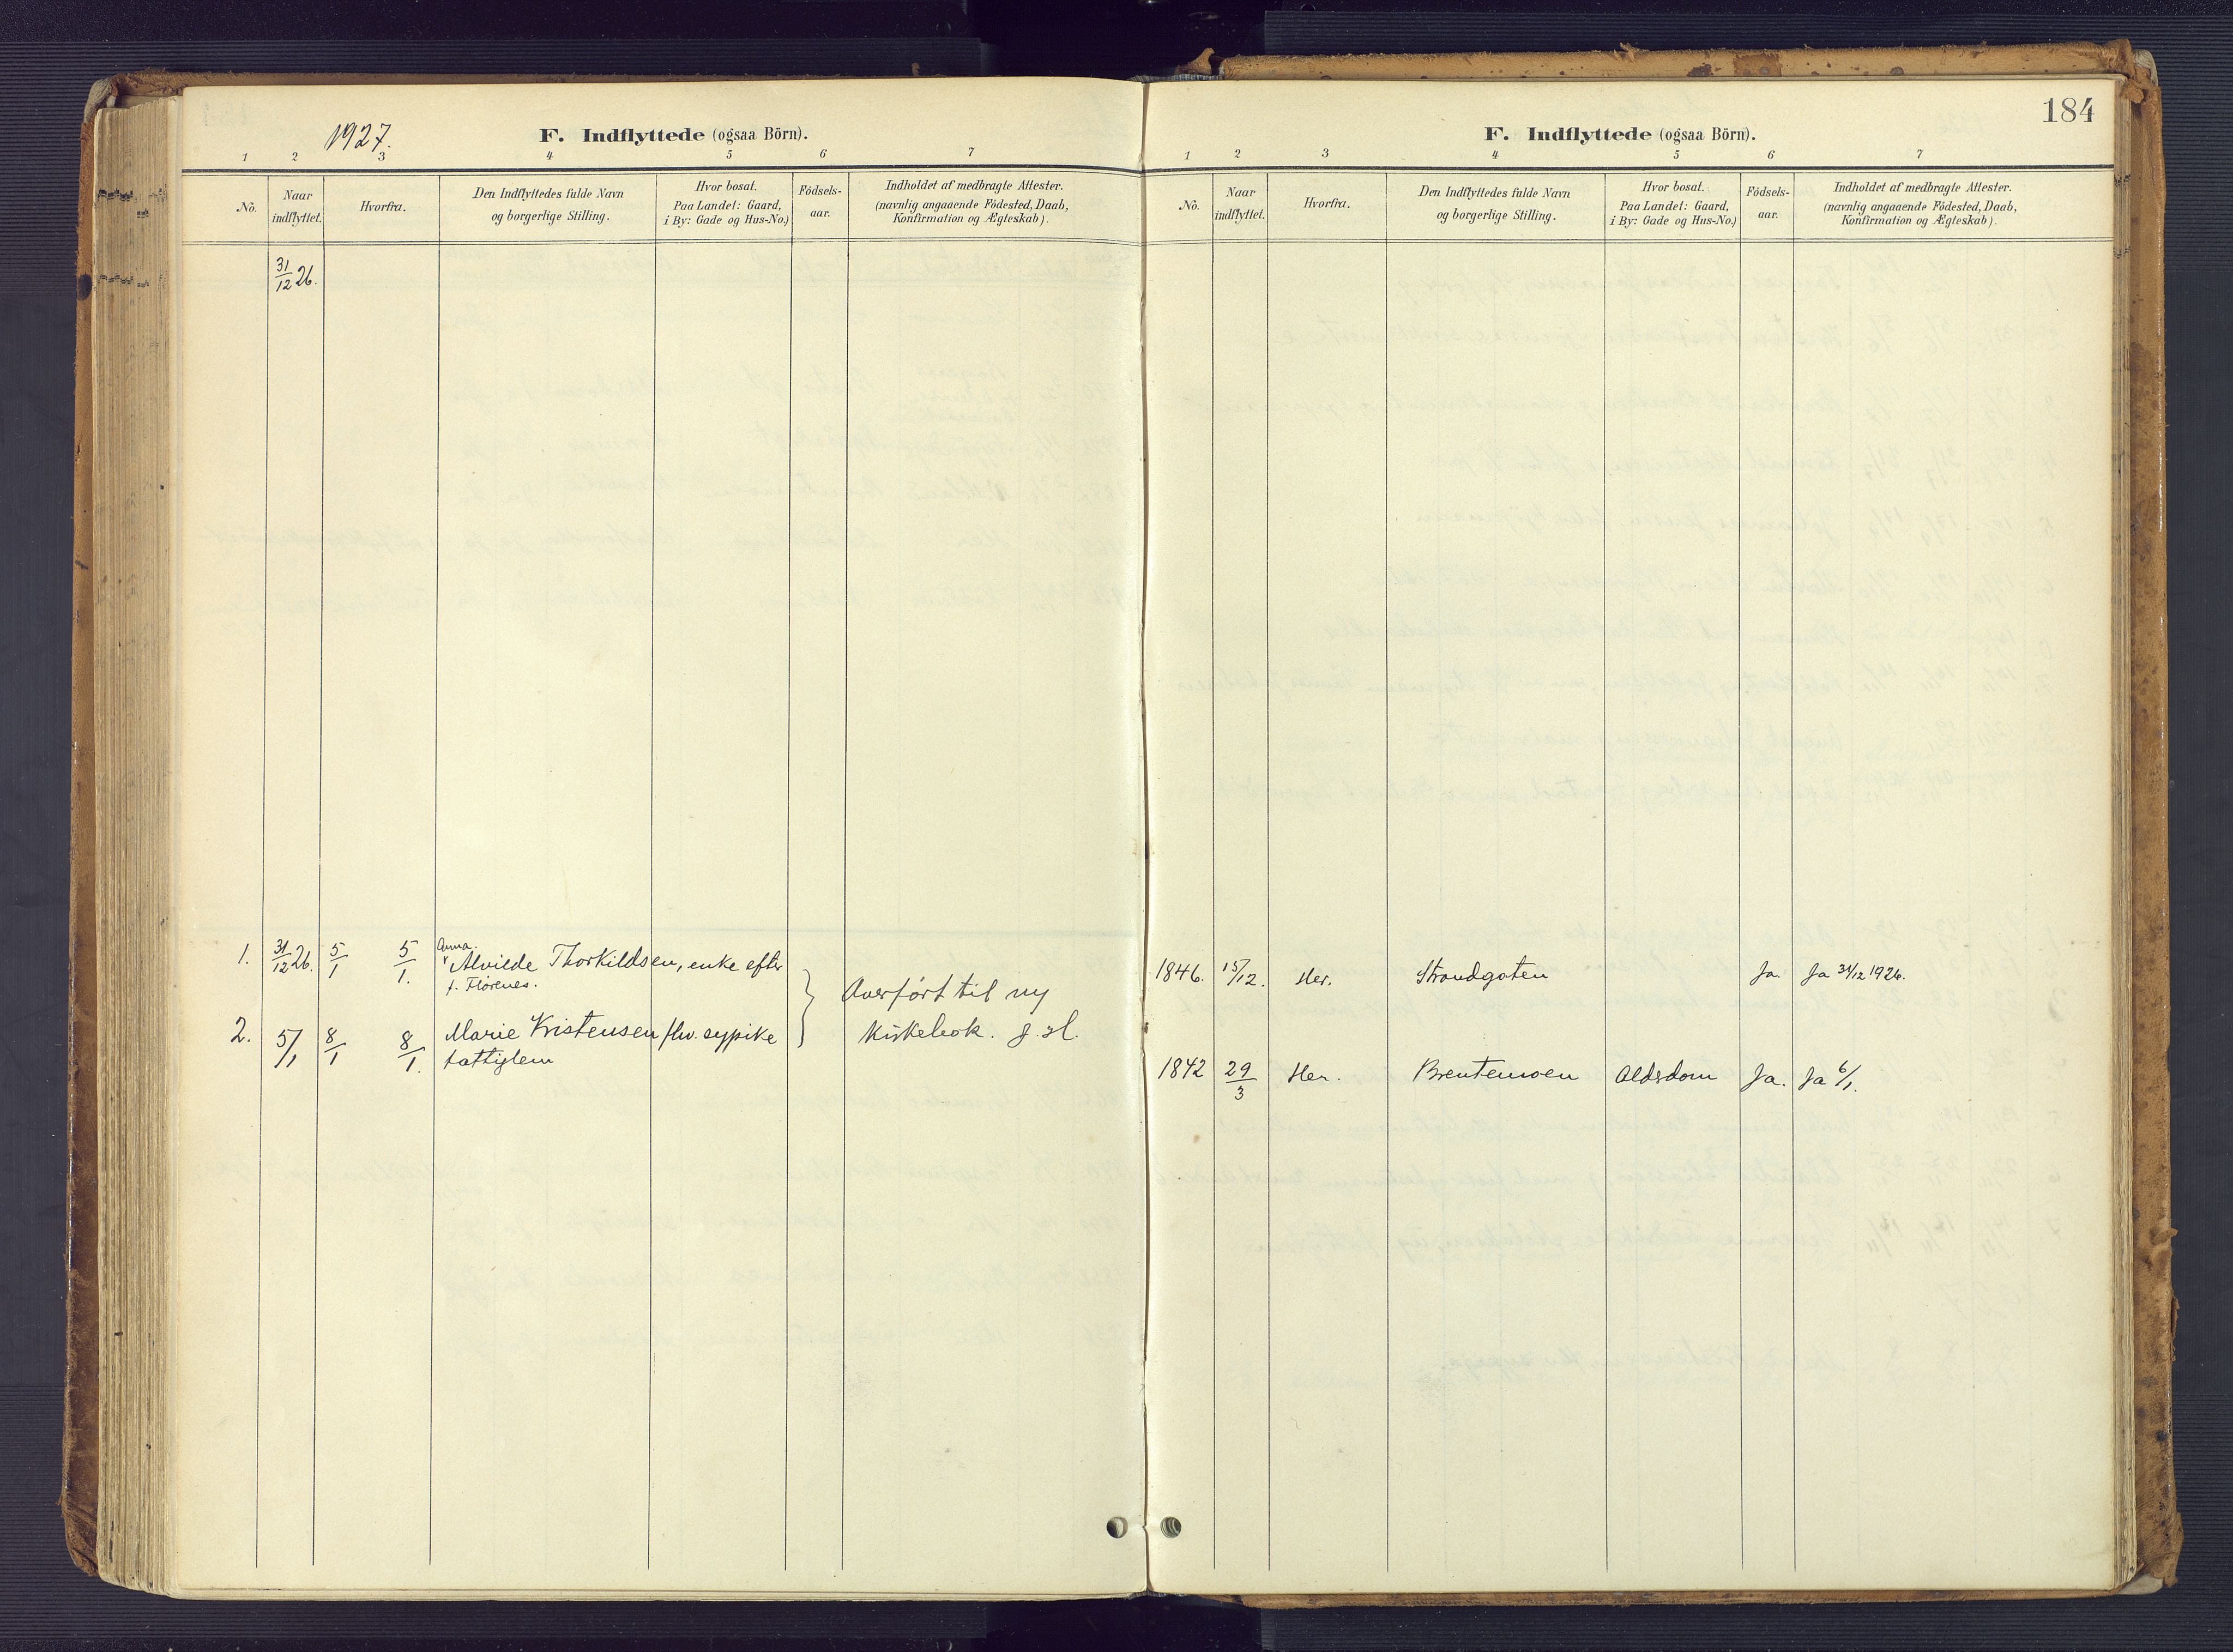 1927.
F. Indflyttede (ogsaa Börn).
1 2 3 4 5 6 7
No.
Naar
indflyttet.
Hvorfra.
Den Indflyttedes fulde Navn
og borgerlige Stilling.
Hvor bosat.
Paa Landet: Gaard,
i By: Gade og Hus-No.)
Födsels-
aar.
Indholdet af medbragte Attester.
(navnlig angaaende Födested, Daab,
Konfirmation og Ægteskab).
31/12 26.
1. 31/12 26. 5/1 5/1. Anna
Alvilde Thorkildsen, enke efter
f. Florenes.
2. 5/1 8/1 8/1. Marie Kristensen fhv. sypike
fattiglem
Overført til ny
kirkebok.
184
F. Indflyttede (ogsaa Börn).
1 2 3 4 5 6 7
No.
Naar
indflyttet.
Hvorfra.
Den Indflyttedes fulde Navn
og borgerlige Stilling.
Hvor bosat.
Paa Landet: Gaard,
i By: Gade og Hus-No.)
Födsels-
aar.
Indholdet af medbragte Attester.
(navnlig angaaende Födested, Daab,
Konfirmation og Ægteskab).
1846. 15/12. Her. Strandgaten Ja. Ja 31/12 1926.
1842 29/3 Her. Brentemoen Aldsdom Ja. Ja 6/1.